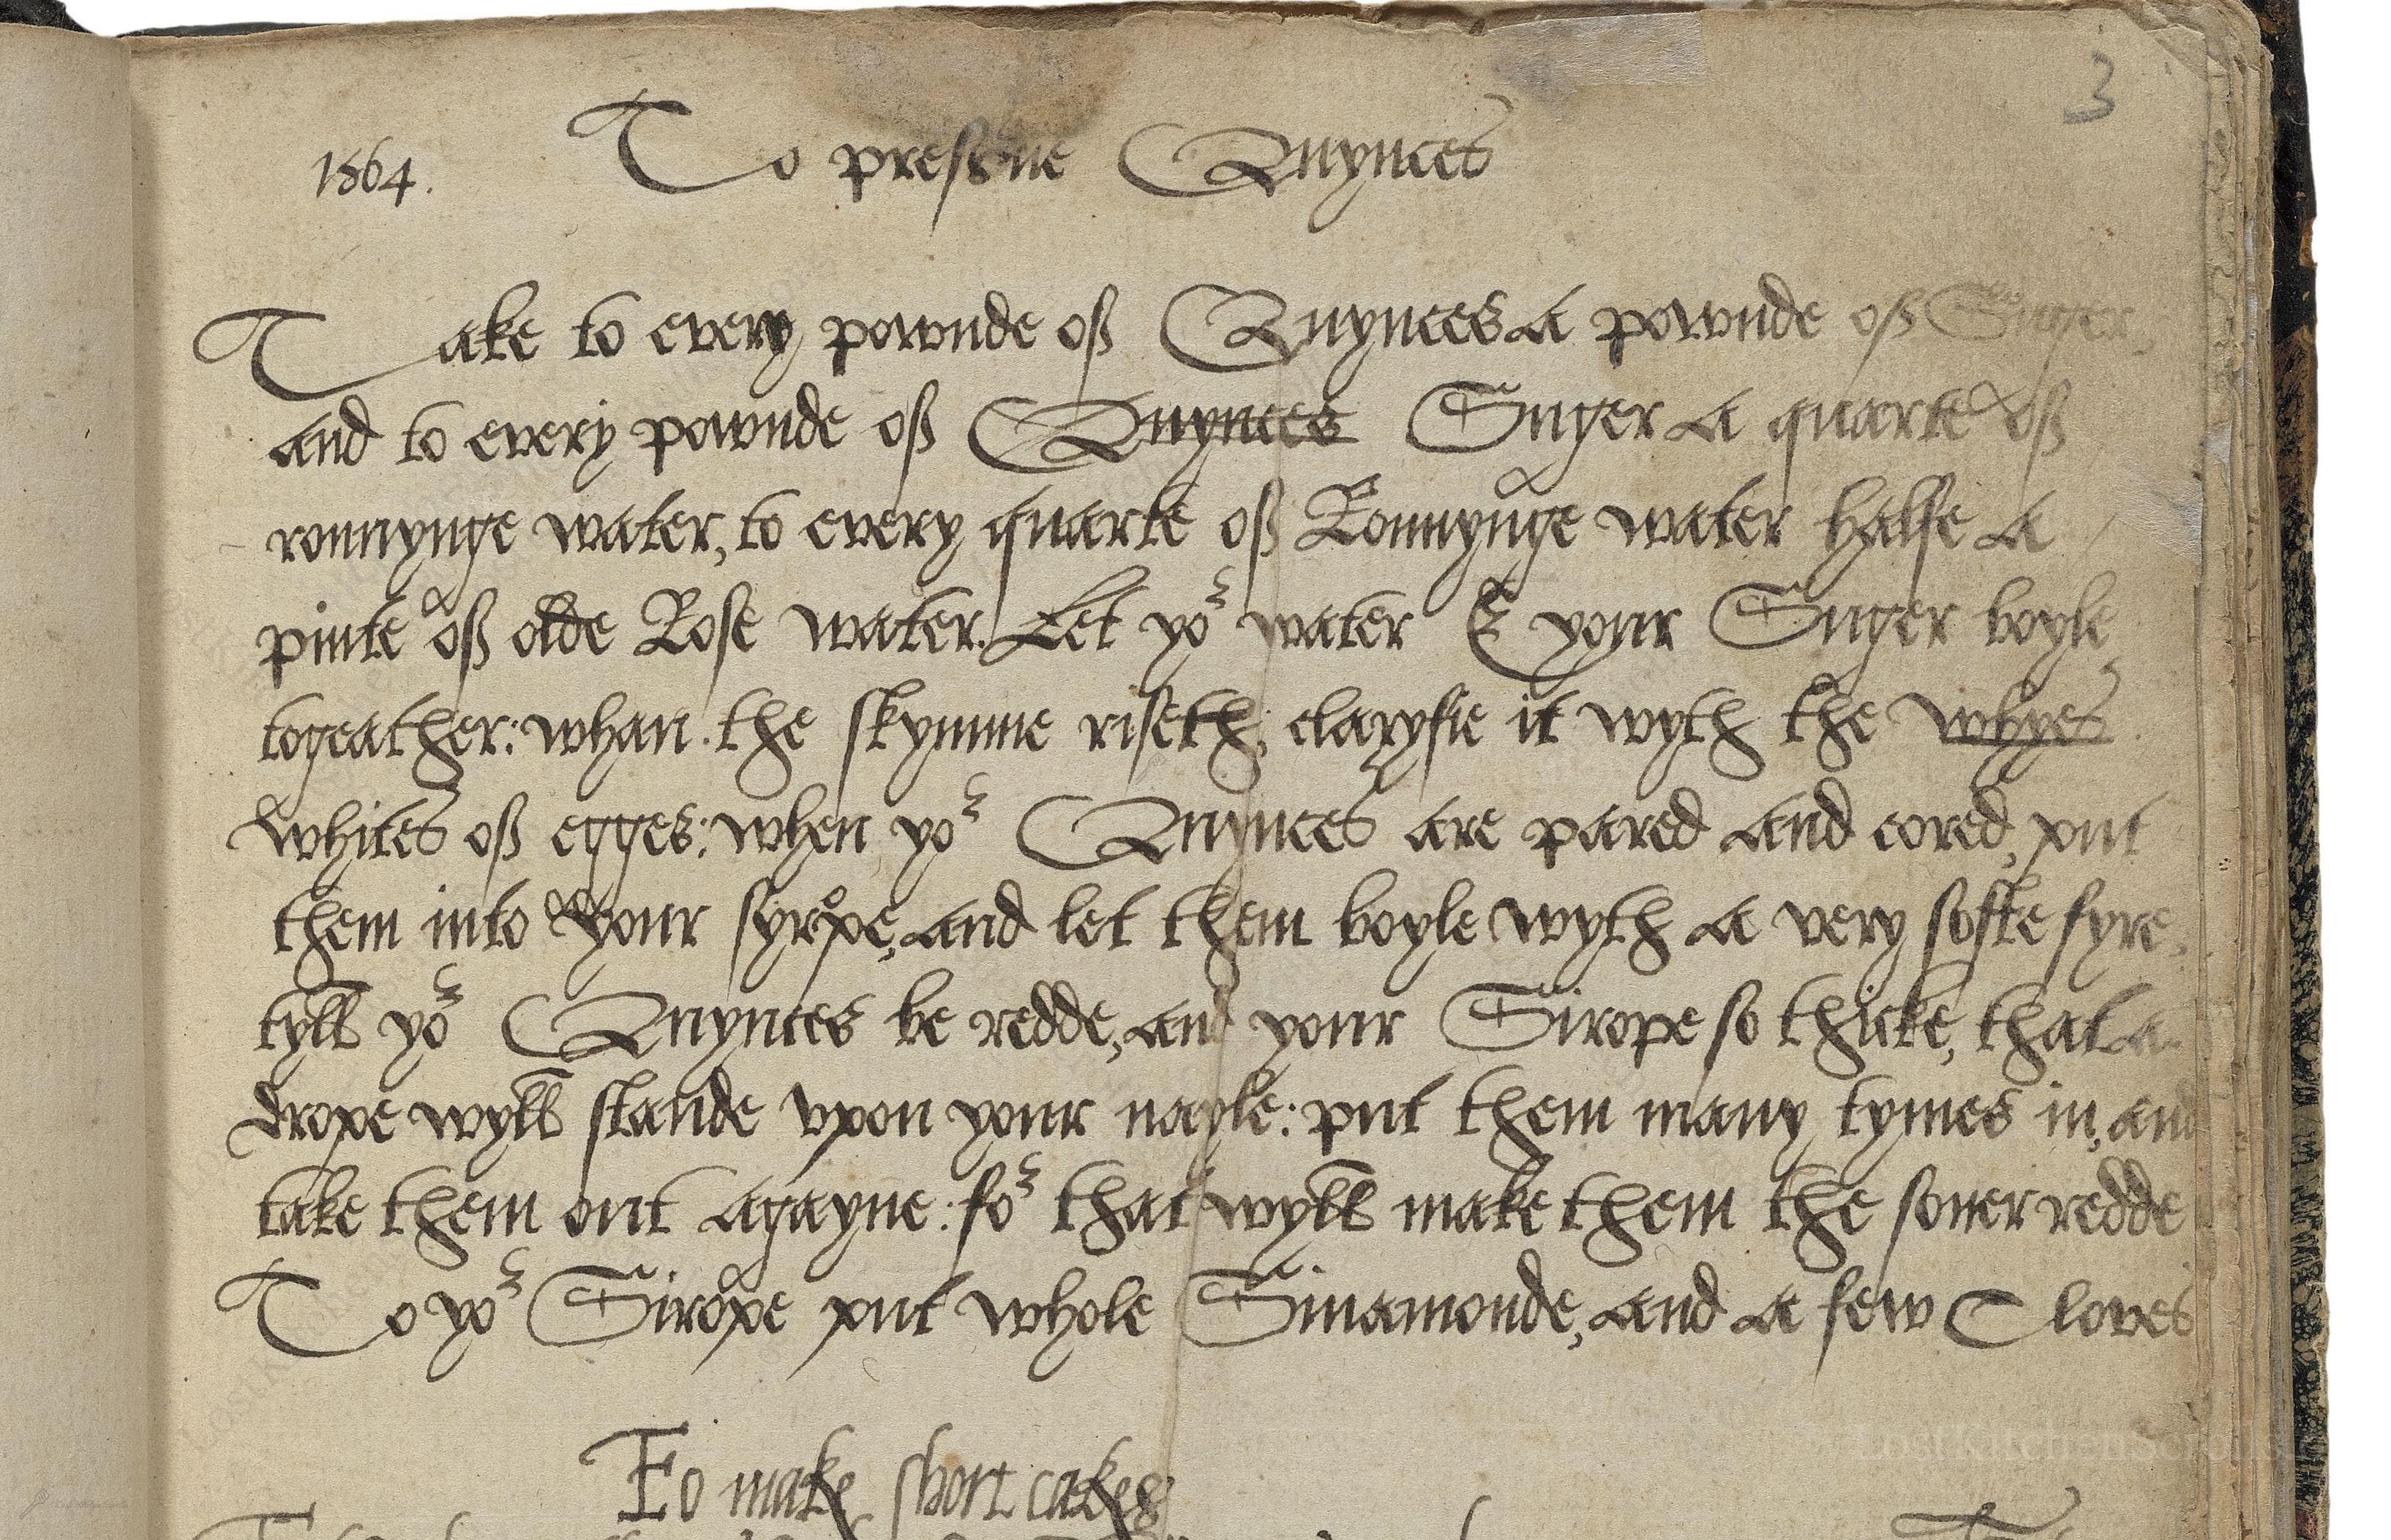 3
1564. To preserue Quynces
Take to every pownde off Quynces a pownde off Suger,
and to every pownde off Quynces Suger a quarte off
ronnynge water, to every quarte off Ronnynge water halfe a
pinte off olde Rose water. Let yor water & your Suger boyle
togeather: whan the skymme riseth, claryfie it wyth the whyes
whites off egges: when yor Quynces are pared and cored, put
them into your syrope, and let them boyle wyth a very softe fyre,
tyll yor Quynces be redde, and your Sirope so thicke, that a
drope wyll stande vpon your nayle: put them many tymes in, and
take them out agayne: for that wyll make them the soner redde
To yor Sirope put whole Sinamonde, and a few Cloves
To make short cakes
LostKitchenScrolls